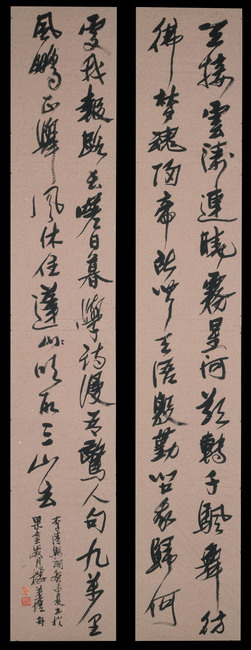 天接雲濤連曉霧星河欲轉千帆舞彷
彿夢魂歸帝所聞天語殷勤問我歸何
處我報路長嗟日暮學詩漫有驚人句九萬里
風鵬正舉風休住蓬舟吹取三山去
李清照詞